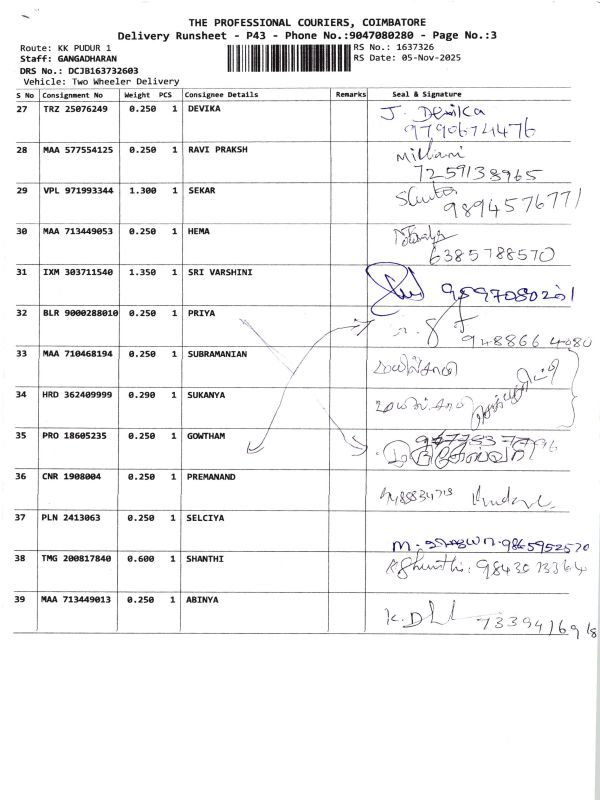 THE PROFESSIONAL COURIERS, COIMBATORE
Delivery Runsheet - P43 - Phone No.:9047080280 - Page No.:3
Route: KK PUDUR 1 RS No.: 1637326
Staff: GANGADHARAN RS Date: 05-Nov-2025
DRS No.: DCJB163732603
Vehicle: Two Wheeler Delivery
S No Consignment No Weight PCS Consignee Details Remarks Seal & Signature
27 TRZ 25076249 0.250 1 DEVIKA J. Devika
9790674476
28 MAA 577554125 0.250 1 RAVI PRAKSH
7259138965
29 VPL 971993344 1.300 1 SEKAR
9894576771
30 MAA 713449053 0.250 1 HEMA
6385788570
31 IXM 303711540 1.350 1 SRI VARSHINI
32 BLR 9000288010 0.250 1 PRIYA
948866 4080
33 MAA 710468194 0.250 1 SUBRAMANIAN
34 HRD 362409999 0.290 1 SUKANYA
35 PRO 18605235 0.250 1 GOWTHAM
36 CNR 1908004 0.250 1 PREMANAND
37 PLN 2413063 0.250 1 SELCIYA
9865952570
38 TMG 200817840 0.600 1 SHANTHI
9843073364
39 MAA 713449013 0.250 1 ABINYA
7339416918